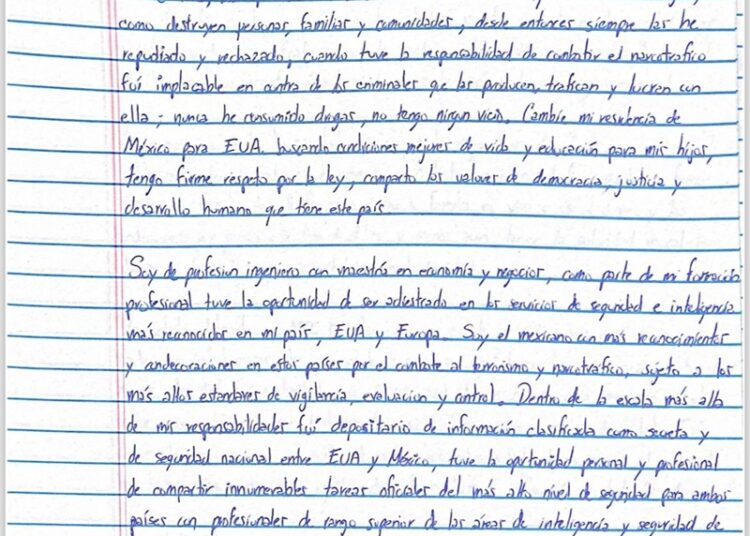 como destruyen personas, familias y comunidades, desde entonces siempre las he
repudiado y rechazado, cuando tuve la responsabilidad de combatir el narcotrafico
fui implacable en contra de los criminales que las producen, trafican y lucran con
ella; nunca he consumido drogas, no tengo ningun vicio. Cambie mi residencia de
México para EUA. buscando condiciones mejores de vida y educación para mis hijos,
tengo firme respeto por la ley, comparto los valores de democracia, justicia y
desarrollo humano que tiene este país.
Soy de profesion ingeniero con maestría en economía y negocios, como parte de mi formación
profesional tuve la oportunidad de ser adiestrado en los servicios de seguridad e inteligencia
más reconocidos en mi país, EUA y Europa. Soy el mexicano con más reconocimientos
y condecoraciones en estos países por el combate al terrorismo y narcotráfico, sujeto a los
más altos estandares de vigilancia, evaluacion y control. Dentro de la escala más alta
de mis responsabilidades fuí depositario de información clasificada como secreta y
de seguridad nacional entre EUA y México, tuve la oportunidad personal y profesional
de compartir innumerables tareas oficiales del más alto nivel de seguridad para ambos
países con profesionales de rango superior de las áreas de inteligencia y seguridad de